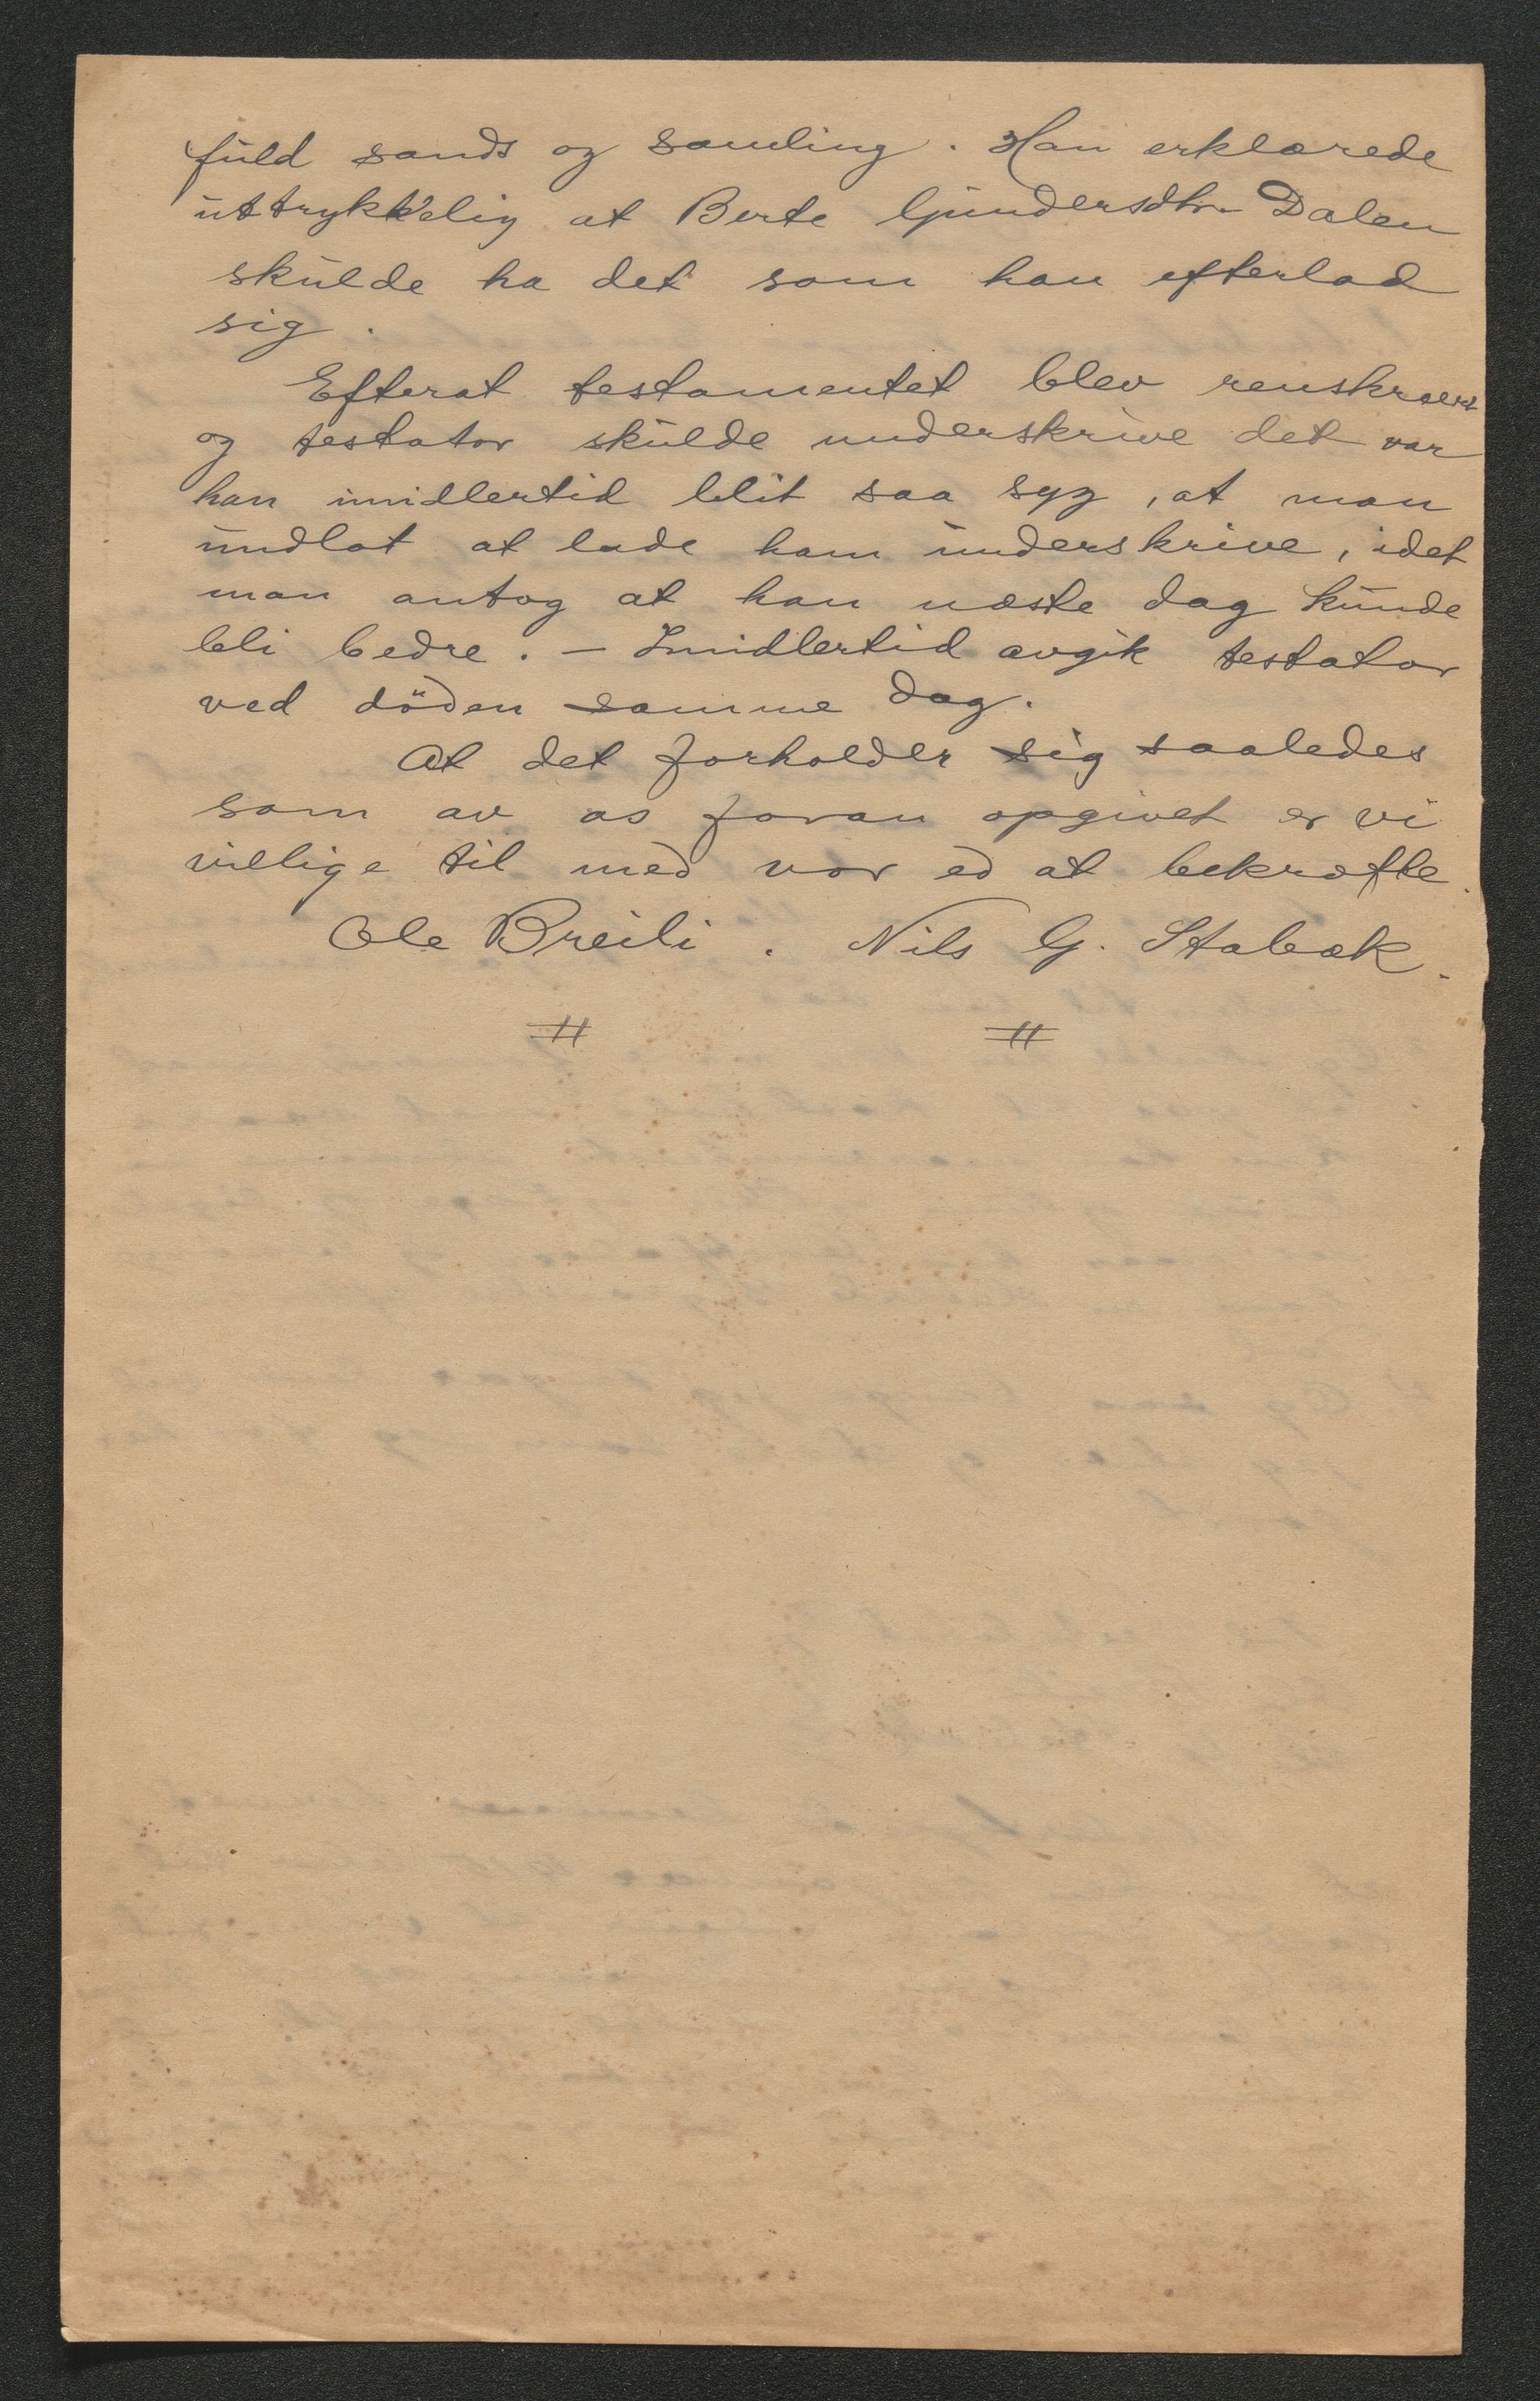 fuld sands og samling. Han erklærede
uttrykkelig at Berte Gundersdtr. Dalen
skulde ha det som han efterlod
sig.
Efterat testamentet blev renskrevet
og testator skulde underskrive det var
han imidlertid blit saa syg, at man
undlot at lade ham underskrive, idet
man antog at han næste dag kunde
bli bedre. – Imidlertid avgik testator
ved döden samme dag.
At det forholder sig saaledes
som av os foran opgivet er vi
villige til med vor ed at bekræfte.
Ole Breili. Nils G. Stabæk.